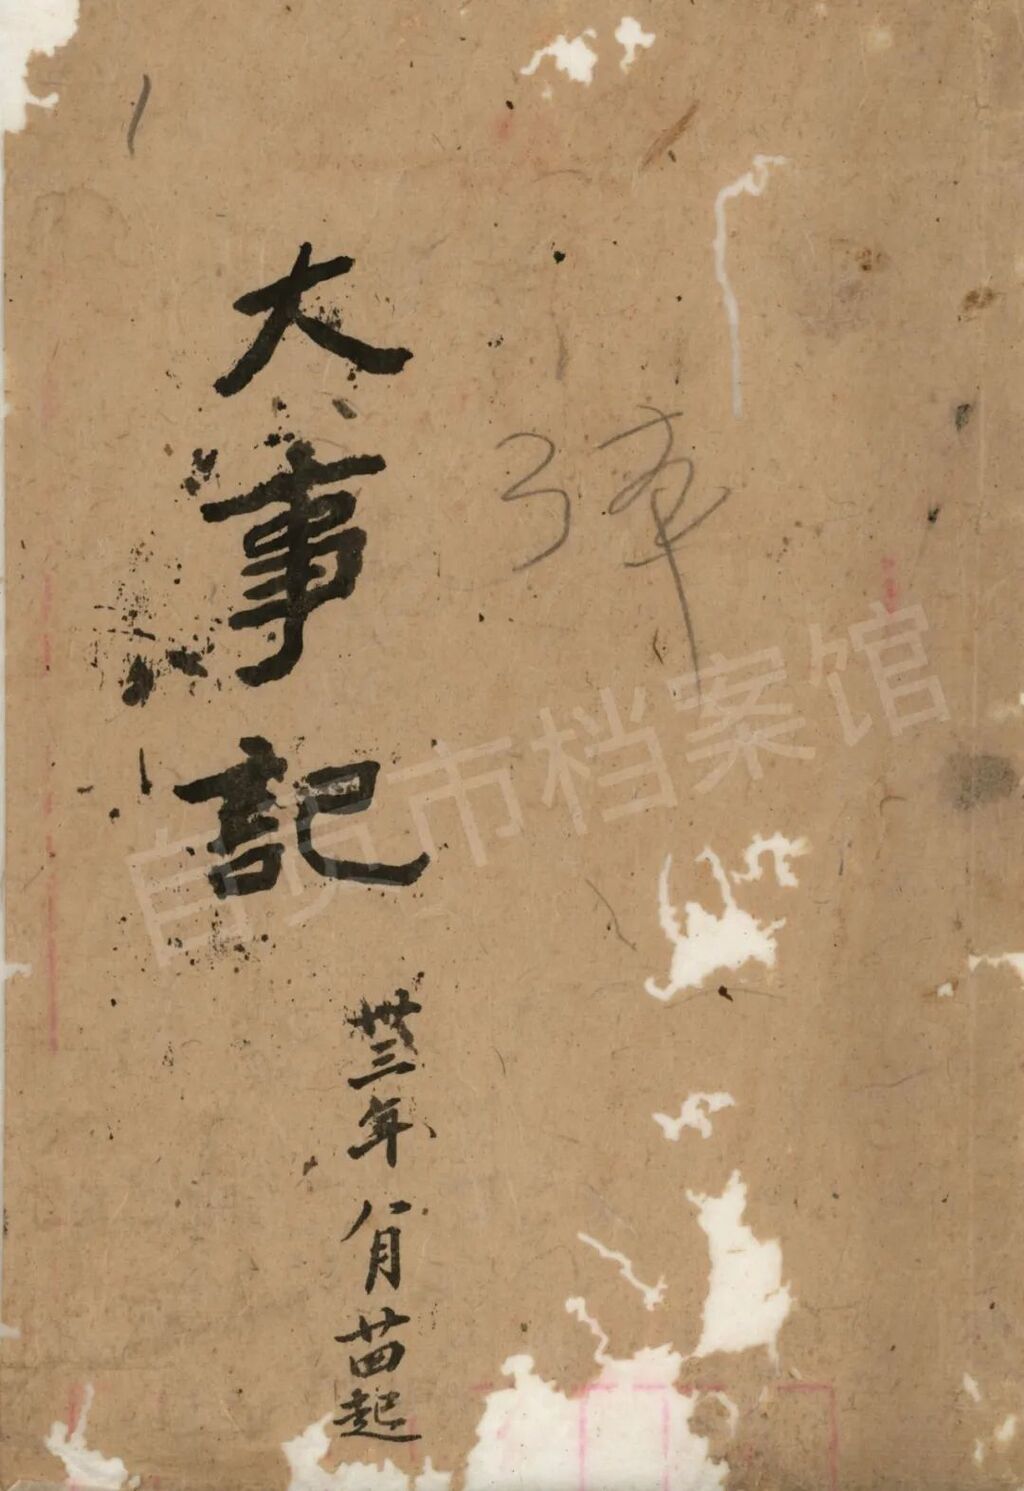 大事記
卅三年 八月廿四起
自贡市档案馆